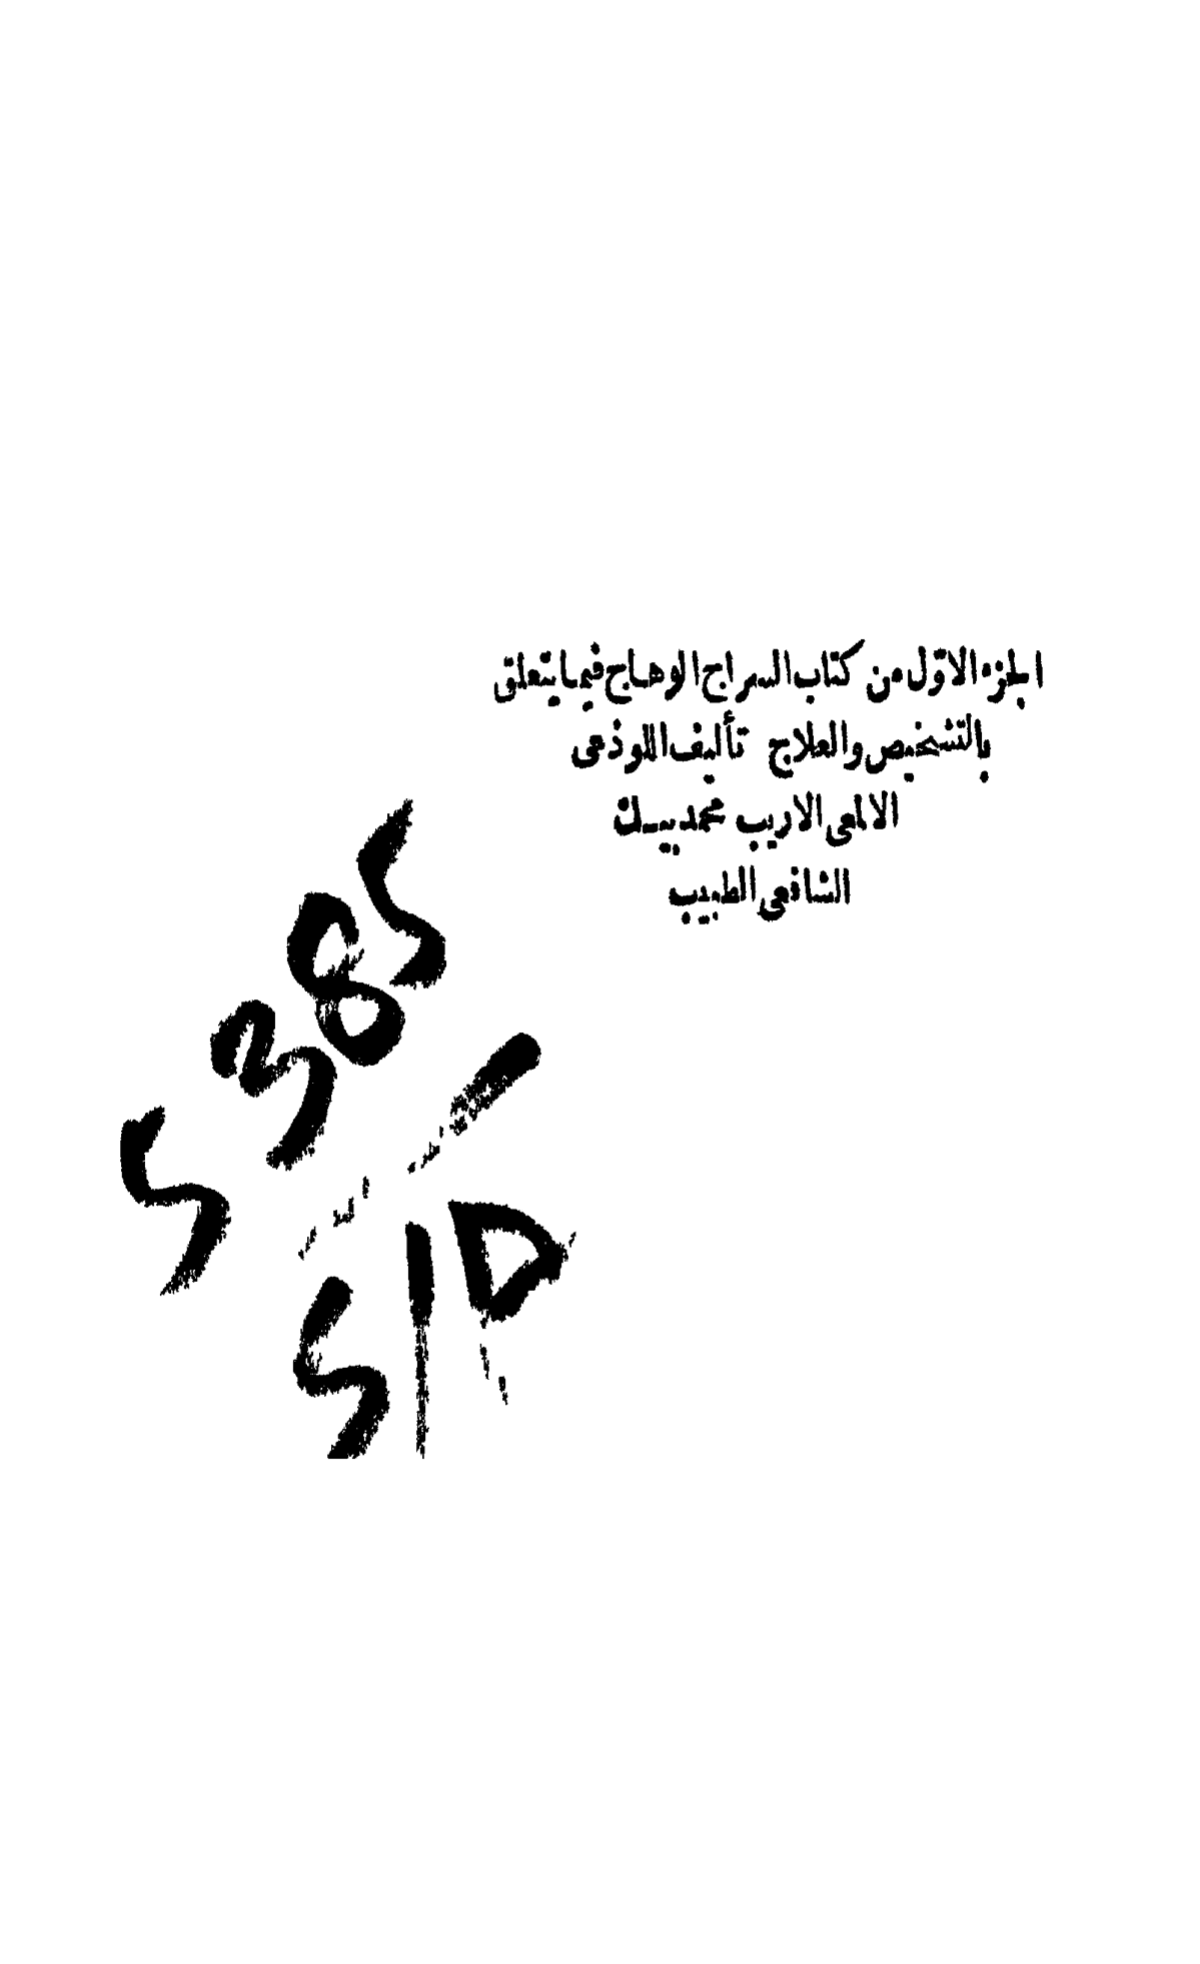 الجزء الاوّل من كتاب السراج الوهاج فيما يتعلق
بالتشخيص والعلاج تأليف اللوذعى
الالمعى الاريب محمد بيك
الشافعى الطبيب
5385
SID